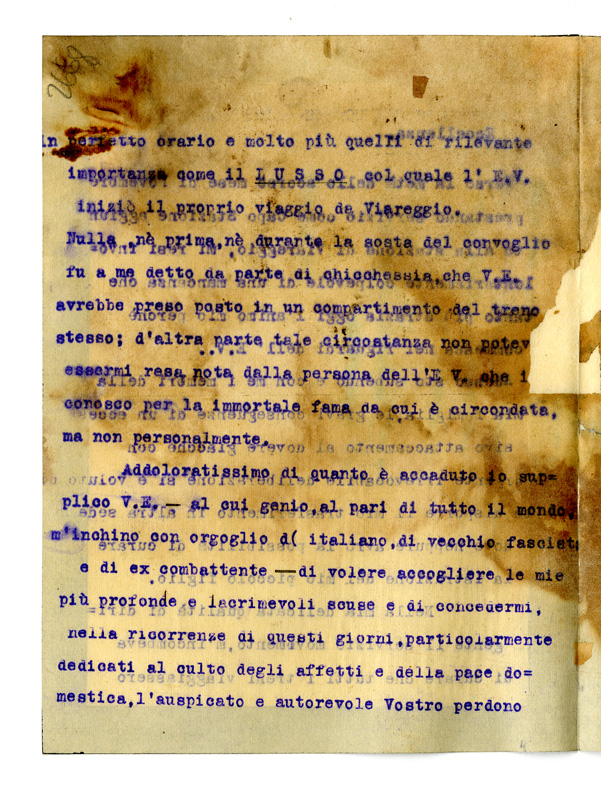 in perfetto orario e molto più quelli di rilevante
importanza come il L U S S O col quale l' E.V.
iniziò il proprio viaggio da Viareggio.
Nulla ,nè prima,nè durante la sosta del convoglio
fu a me detto da parte di chicchessia,che V.E.
avrebbe preso posto in un compartimento del treno
stesso; d'altra parte tale circostanza non potev
essermi resa nota dalla persona dell'E.V. che i
conosco per la immortale fama da cui è circondata,
ma non personalmente.
Addoloratissimo di quanto è accaduto io sup=
plico V.E. — al cui genio,al pari di tutto il mondo,
m'inchino con orgoglio d( italiano,di vecchio fascist
e di ex combattente —di volere accogliere le mie
più profonde e lacrimevoli scuse e di concedermi,
nella ricorrenze di questi giorni,particolarmente
dedicati al culto degli affetti e della pace do=
mestica,l'auspicato e autorevole Vostro perdono